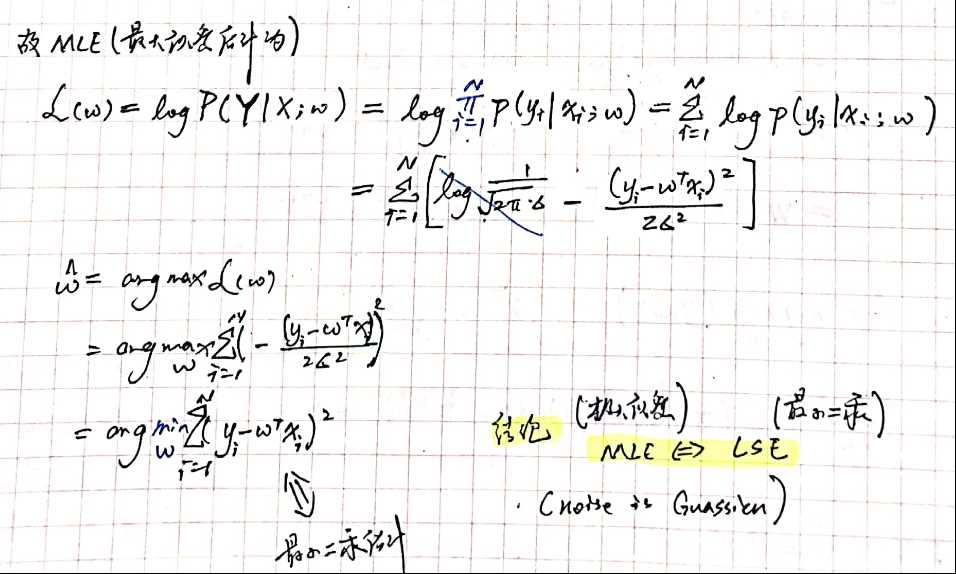 故 MLE (最大似然估计为)
L(w) = log P(Y|X;w) = log ∏_{i=1}^{N} P(y_i|x_i;w) = ∑_{i=1}^{N} log p(y_i|x_i;w)
= ∑_{i=1}^{N} [log 1/(√(2π)·σ) - (y_i-w^T x_i)^2/(2σ^2)]
ŵ = arg max L(w)
= arg max_w ∑_{i=1}^{N} (- (y_i-w^T x_i)^2/(2σ^2))
= arg min_w ∑_{i=1}^{N} (y_i-w^T x_i)^2
⇕
最小二乘估计
结论 (极大似然) (最小二乘)
MLE ⇔ LSE
(noise is Guassien)